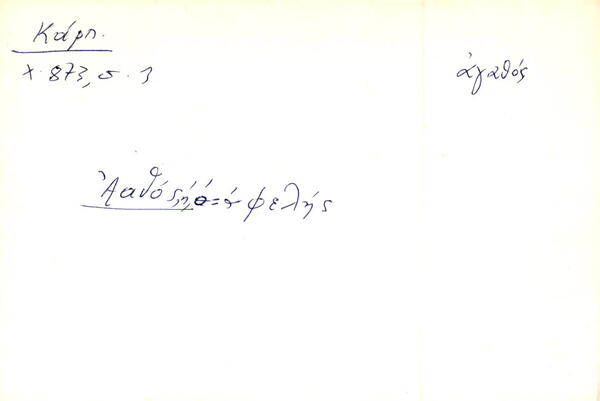 Κάρπ.
χ. 873, σ. 3
ἀγαθός
Ἀαθός, ή, ό = ἀφελής